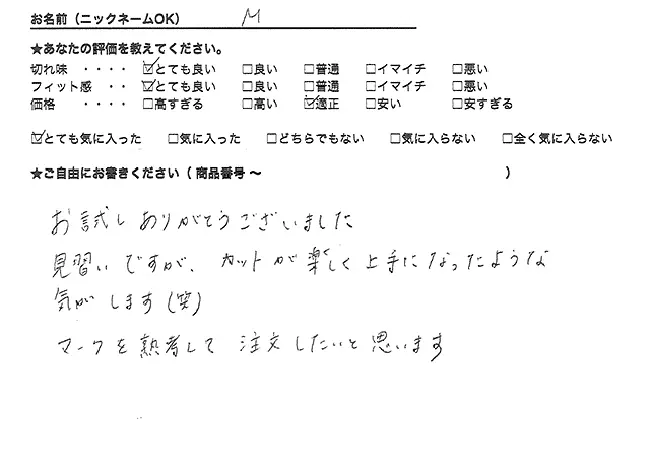 お名前（ニックネームOK） M
★あなたの評価を教えてください。
切れ味 ・・・・ ☑とても良い □良い □普通 □イマイチ □悪い
フィット感 ・・ ☑とても良い □良い □普通 □イマイチ □悪い
価格 ・・・・ □高すぎる □高い ☑適正 □安い □安すぎる
☑とても気に入った □気に入った □どちらでもない □気に入らない □全く気に入らない
★ご自由にお書きください（ 商品番号～ ）
お試しありがとうございました
見習いですが、カットが楽しく上手になったような
気がします（笑）
マークを熟考して注文したいと思います